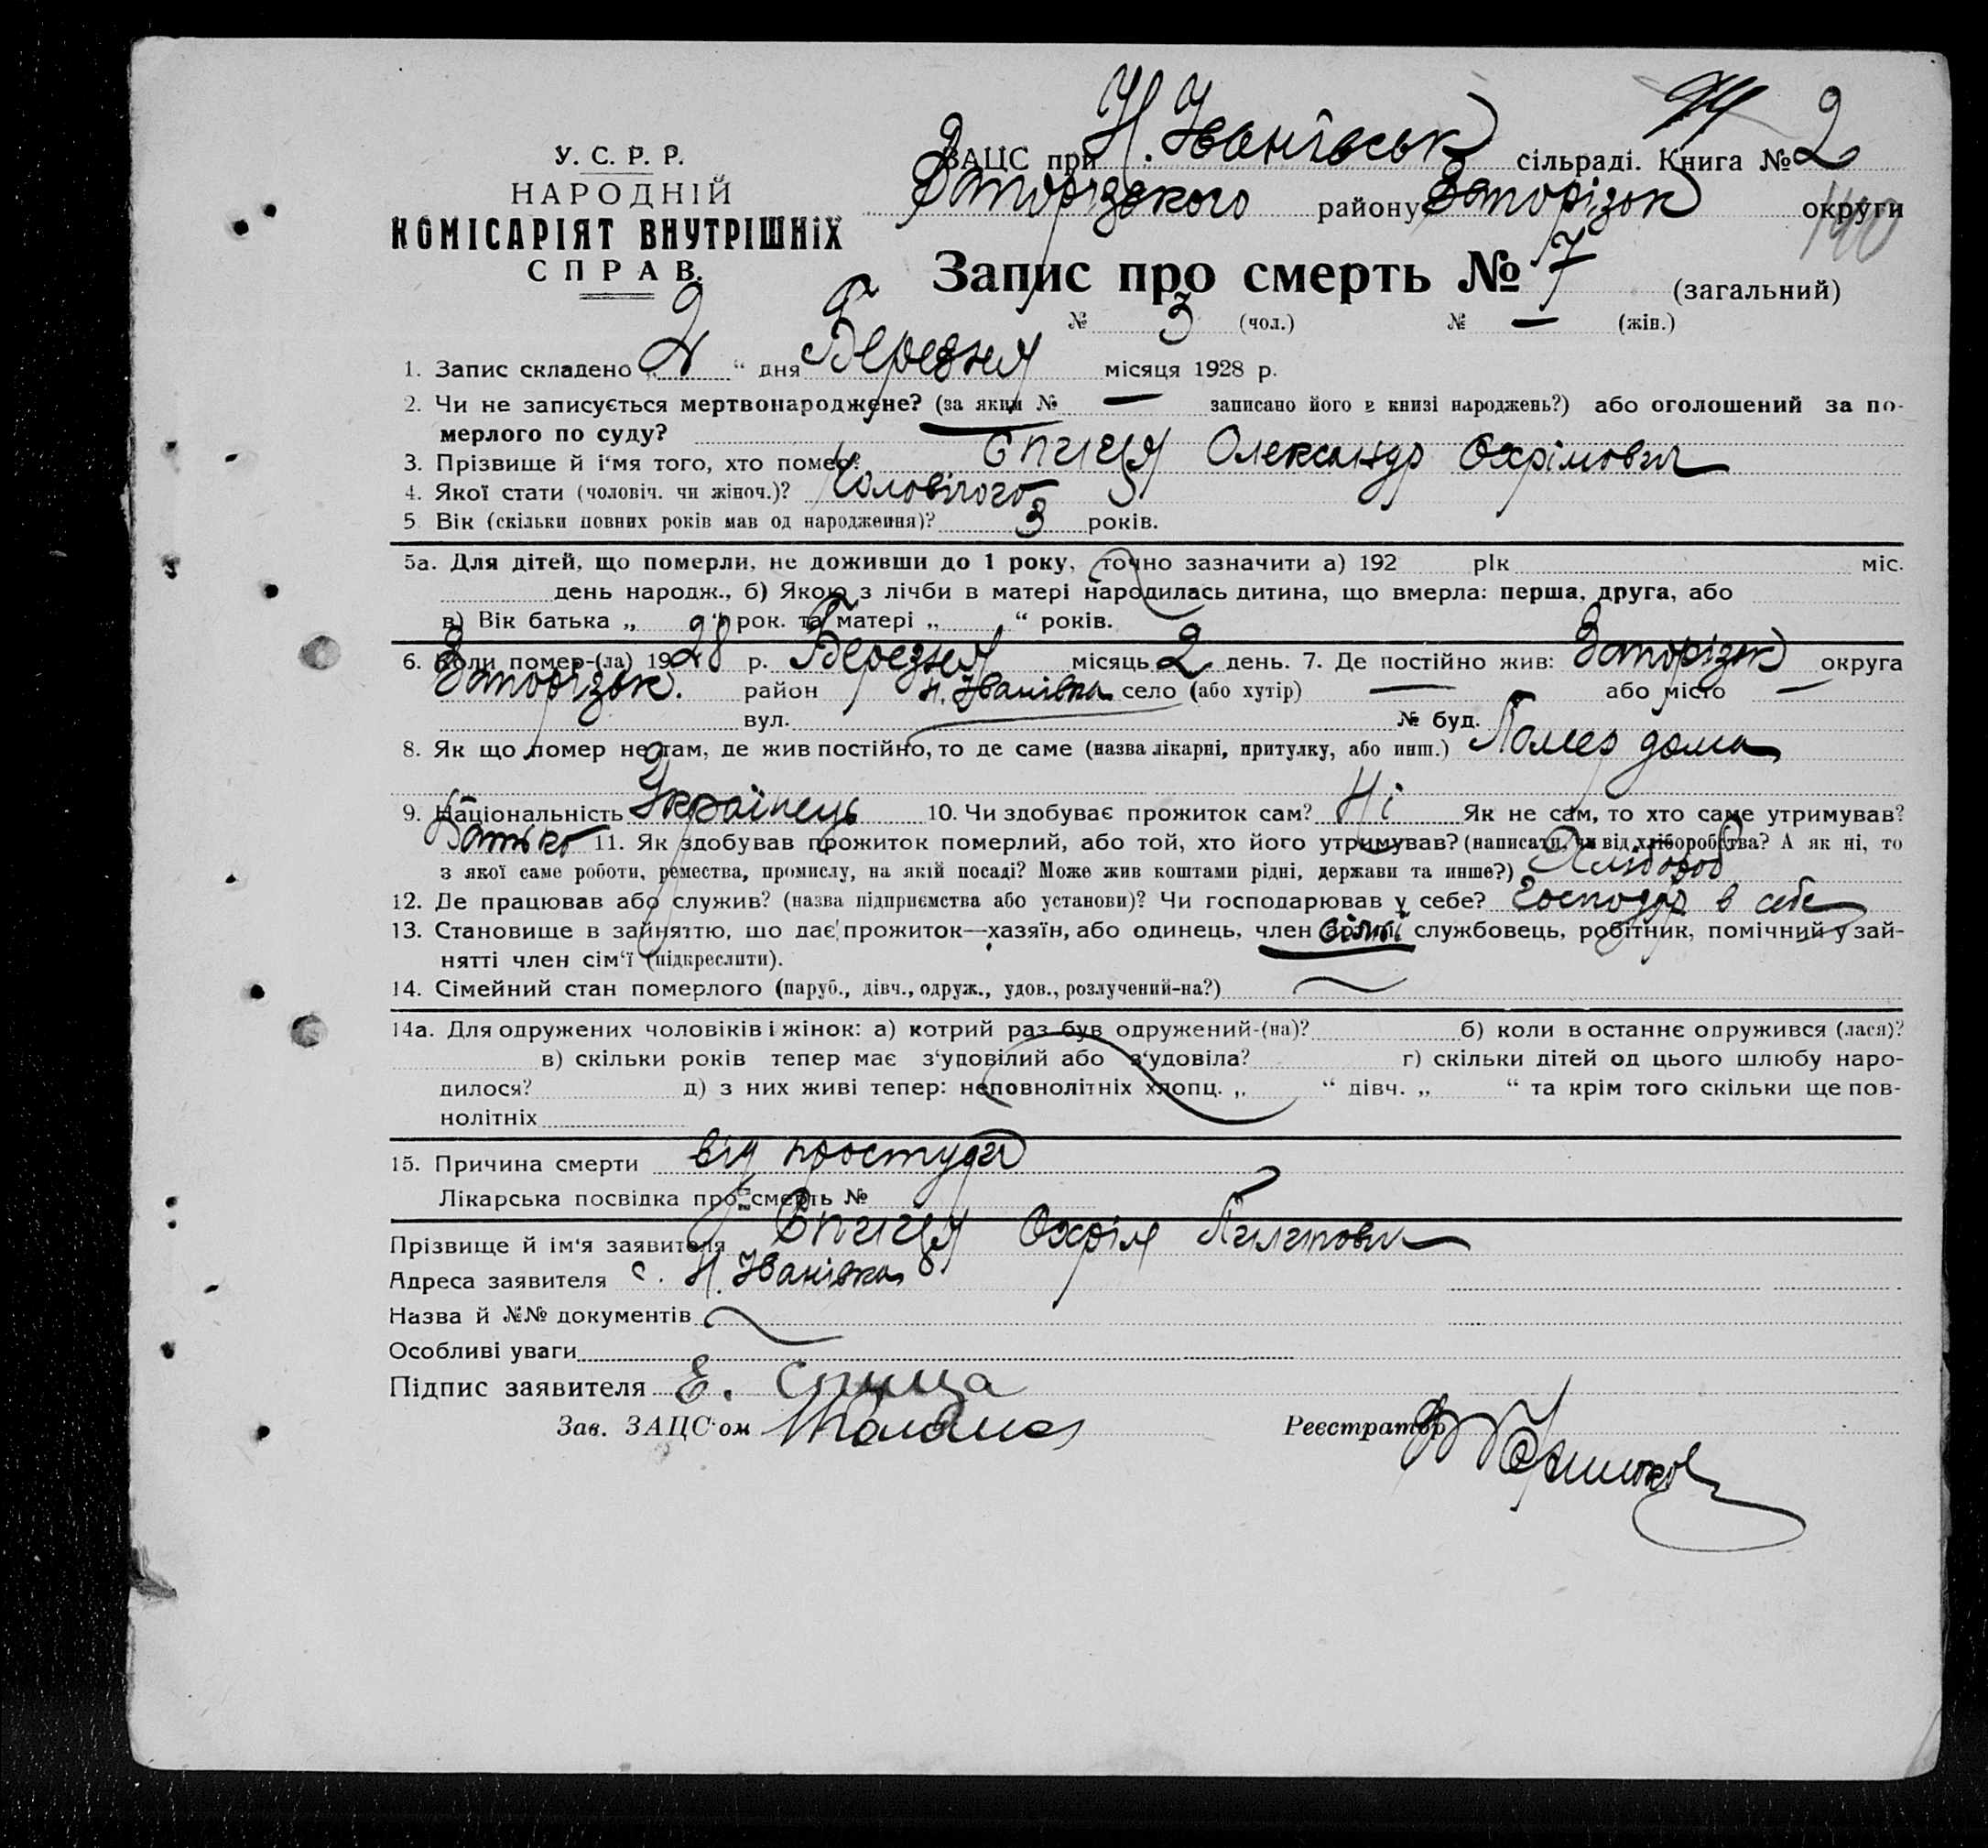 У. С. Р. Р.
НАРОДНІЙ
КОМІСАРІЯТ ВНУТРІШНІХ
СПРАВ.
ЗАЦС при Н. Іванівськ сільраді. Книга № 2
Запорізского району Запорізок округи
190
Запис про смерть № 7 (загальний)
№ 3 (чол.) № — (жін.)
1. Запис складено „ 2 “ дня Березня місяця 1928 р.
2. Чи не записується мертвонароджене? (за яким № — записано його в книзі народжень?) або оголошений за по-
мерлого по суду?
3. Прізвище й і'мя того, хто помер? Спиця Олександр Охрімович
4. Якої стати (чоловіч. чи жіноч.)? Чоловічого
5 Вік (скільки повних років мав од народження)? 3 років.
5а. Для дітей, що померли, не доживши до 1 року, точно зазначити а) 192 рік міс.
день народж., б) Якою з лічби в матері народилась дитина, що вмерла: перша, друга, або
в) Вік батька „ “ рок. та матері „ “ років.
6. Коли помер-(ла) 1928 р. Березня місяць 2 день. 7. Де постійно жив: Запорізок округа
Запорізок. район Н. Іванівка село (або хутір) — або місто —
вул. № буд.
8. Як що помер не там, де жив постійно, то де саме (назва лікарні, притулку, або инш.) Помер дома
9. Національність Українець 10. Чи здобуває прожиток сам? Ні Як не сам, то хто саме утримував?
Батько 11. Як здобував прожиток померлий, або той, хто його утримував? (написати, чи від хліборобства? А як ні, то
з якої саме роботи, ремества, промислу, на якій посаді? Може жив коштами рідні, держави та инше?) Хлібороб
12. Де працював або служив? (назва підприємства або установи)? Чи господарював у себе? Господар в себе
13. Становище в зайняттю, що дає прожиток—хазяїн, або одинець, член сімї службовець, робітник, помічний у зай-
нятті член сім'ї (підкреслити).
14. Сімейний стан померлого (паруб., дівч., одруж., удов., розлучений-на?)
14а. Для одружених чоловіків і жінок: а) котрий раз був одружений-(на)? б) коли в останнє одружився (лася)?
в) скільки років тепер має з'удовілий або з'удовіла? г) скільки дітей од цього шлюбу наро-
дилося? д) з них живі тепер: неповнолітніх хлопц. „ “ дівч. „ “ та крім того скільки ще пов-
нолітніх
15. Причина смерти від простуди
Лікарська посвідка про смерть №
Прізвище й ім'я заявителя Спиця Охрім Пилипович
Адреса заявителя с. Н. Іванівка
Назва й №№ документів
Особливі уваги
Підпис заявителя Е. Спица
Зав. ЗАЦС'ом
Реєстратор